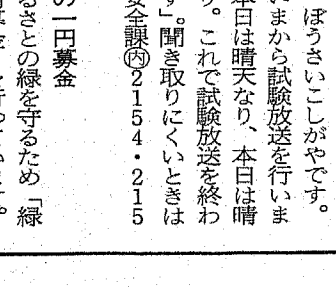 ぼうさいこしがやです。
いまから試験放送を行いま
本日は晴天なり、本日は晴
り。これで試験放送を終わ
す」。聞き取りにくいときは
安全課㋤2154・215
の一円募金
るさとの緑を守るため「緑